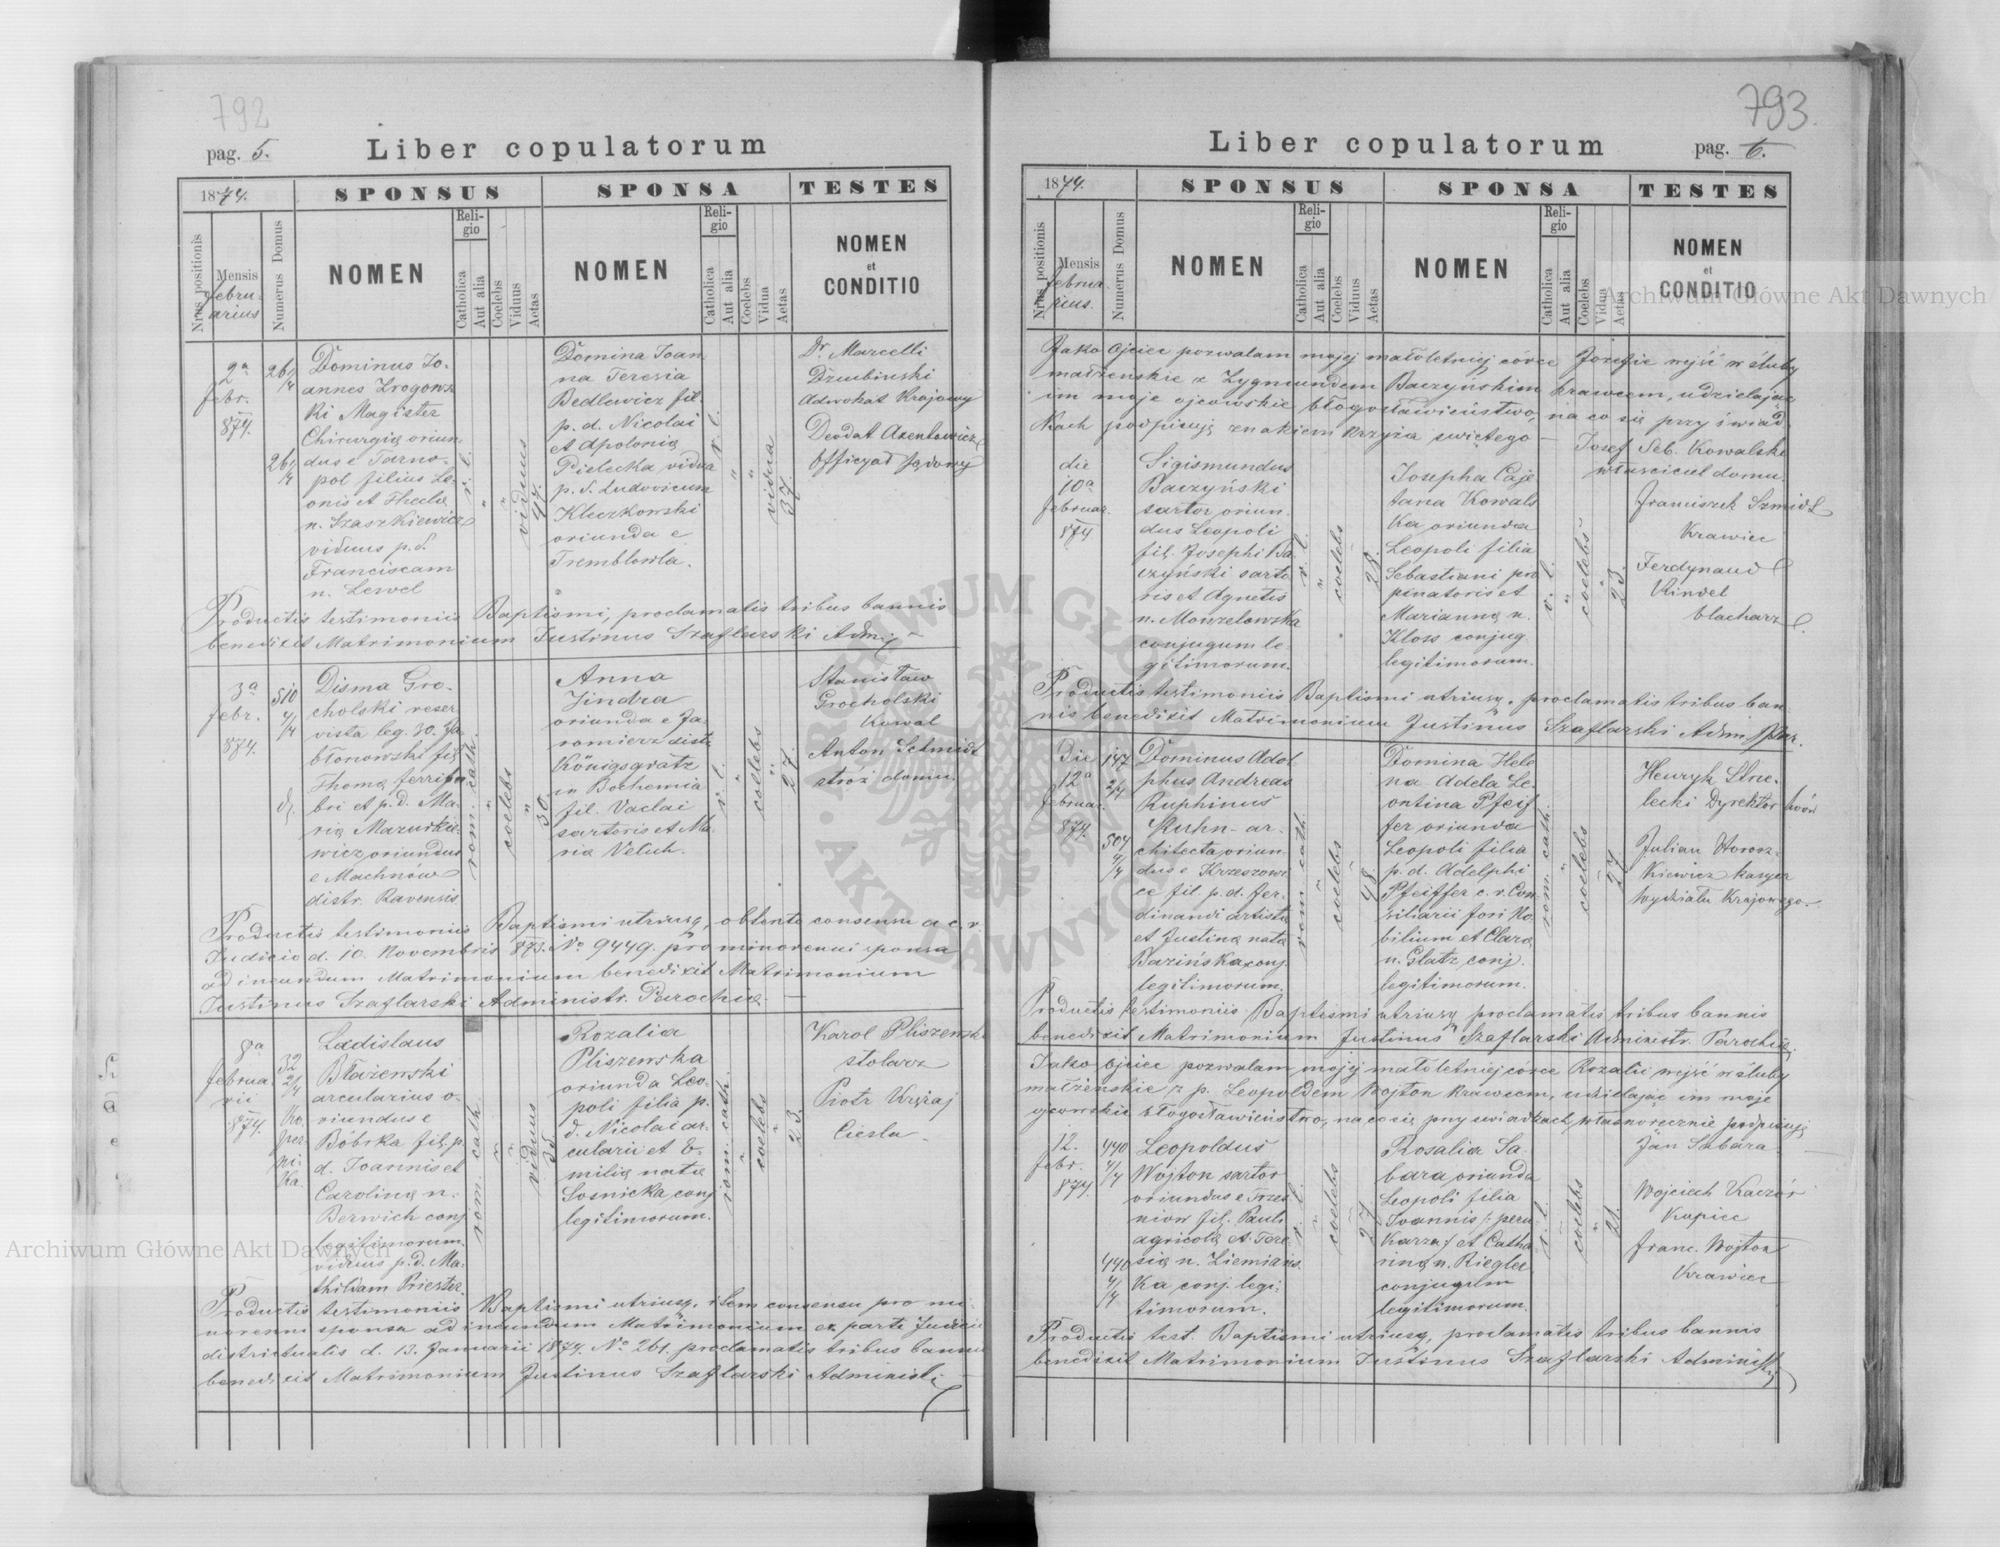 792
pag. 5.
Liber copulatorum
1874.
SPONSUS
SPONSA
TESTES
Nrus positionis
Mensis
februarius
Numerus Domus
NOMEN
Religio
Catholica
Aut alia
Coelebs
Viduus
Aetas
NOMEN
Religio
Catholica
Aut alia
Coelebs
Vidua
Aetas
NOMEN
et
CONDITIO
2a
febr.
874.
Dominus Jo-
annes Zrogows
ki Magister
Chirurgię oriun
dus e Tarno-
pol filius Le-
onis et Theclę
n. Szaszkiewicz
viduus p. d.
Franciscam
n. Lewel
r. l.
viduus
47.
Domina Joan
na Teresia
Bedlewicz fil.
p. d. Nicolai
et Apolonię
Pielecka vidua
p. d. Ludovicum
Kleczkowski
oriunda e
Tremblowla.
r. l.
vidua
37.
Dr Marcelli
Dziubinski
Adwokat Krajowy
Deodat Axentowicz
Officyał sądowy
Productis testimoniis Baptismi, proclamatis tribus bannis
benedixit Matrimonium Justinus Szaflarski Adm.
3a
febr.
874.
510
4/4
Disma Gro-
cholski reser
vista leg. 30. Ja
błonowski fil.
Thomę ferrifa
bri et p. d. Ma-
rię Mazurkie-
wicz oriundus
e Machnow
distr. Ravensis
rom. cath.
coelebs
30.
Anna
Jindra
oriunda e Ja-
romierz distr.
Königsgratz
in Bochemia
fil. Vaclai
sartoris et Ma-
ria Velich.
r. l.
coelebs
27.
Stanisław
Grocholski
Kowal
Anton Schmidt
stroż domu
Productis testimoniis Baptismi utriusq, obtento consensu a c. r.
Judicio d. 10. Novembris 873. No 9449. pro minorenni sponsa
ad ineundum Matrimonium benedixit Matrimonium
Justinus Szaflarski Administr. Parochię.
8a
februa-
rii
874.
32
2/4
Ko
per
ni
ka.
Ladislaus
Błażewski
arcularius o-
riundus e
Bóbrka fil. p.
d. Joannis et
Carolinę n.
Berwich conj.
legitimorum.
viduus p. d. Ma-
thildam Priester.
rom. cath.
viduus
35
Rozalia
Pliszewska
oriunda Leo-
poli filia p.
d. Nicolai ar-
cularii et E-
milię natę
Sosnicka conj.
legitimorum.
rom. cath.
coelebs
23.
Karol Pliszewski
stolarz
Piotr Kręzaj
Ciesla
Productis testimoniis Baptismi utriusq, item consensu pro mi-
norenni sponsa ad ineundum Matrimonium ex parte Judicii
districtualis d. 13. Januarii 1874. No 261. proclamatis tribus bannis
benedixit Matrimonium Justinus Szaflarski Administr.
793.
Liber copulatorum
pag. 6.
1874.
SPONSUS
SPONSA
TESTES
Nrus positionis
Mensis
februa
rius.
Numerus Domus
NOMEN
Religio
Catholica
Aut alia
Coelebs
Viduus
Aetas
NOMEN
Religio
Catholica
Aut alia
Coelebs
Vidua
Aetas
NOMEN
et
CONDITIO
Jako Ojciec pozwalam mojej małoletniej córce Jozefie wejść w śluby
małżenskie z Zygmundem Baczyńskim krawcem, udzielając
im moje ojcowskie błogosławieństwo, na co się przy świad
kach podpisuję znakiem krzyża świętego — Josef Seb. Kowalski
właściciel domu.
die
10a
februar.
874
Sigismundus
Baczyński
sartor oriun
dus Leopoli
fil. Josephi Ba
czyński sarto
ris et Agnetis
n. Mowzelowska
conjugum le-
gitimorum.
r. l.
coelebs
28.
Josepha Caje
tana Kowals
ka oriunda
Leopoli filia
Sebastiani pro
pinatoris et
Mariannę n.
Kloss conjug.
legitimorum.
r. l.
coelebs
23.
Franciszek Szmidt
Krawiec
Ferdynand
Kindel
blacharz
Productis testimoniis Baptismi utriusq, proclamatis tribus ban
nis benedixit Matrimonium Justinus Szaflarski Adm. Par.
Die
12a
februar.
874.
147
2/4
504
4/4
Dominus Adol
phus Andreas
Ruphinus
Kuhn - ar-
chitecta oriun
dus e Krzeszowi
ce fil. p. d. Fer-
dinandi artistę
et Justinę natę
Bazińska conj.
legitimorum.
rom. cath.
coelebs
48
Domina Hele
na Adela Le-
ontina Pfeif
fer oriunda
Leopoli filia
p. d. Adelphi
Pfeiffer c. r. Con
siliarii fori No
bilium et Clarę
n. Glatz conj.
legitimorum.
rom. cath.
coelebs
27
Henryk Strze-
lecki Dyrektor
Julian Worosz-
kiewicz kasyer
wydziału Krajowego
Productis testimoniis Baptismi utriusq proclamatis tribus bannis
benedixit Matrimonium Justinus Szaflarski Administr. Parochię.
Jako Ojciec pozwalam mojej małoletniej córce Rozalii wejść w śluby
małżenskie z p. Leopoldem Wojton krawcem, udzielając im moje
ojcowskie błogosławieństwo, na co się przy swiadkach własnorecznie podpisuję
12.
febr.
874.
440
4/4
440
4/4
Leopoldus
Wojton sartor
oriundus e Trzes
niow fil. Pauli
agricolę et Tere-
się n. Ziemians
ka conj. legi-
timorum.
r. l.
coelebs
27
Rosalia Sa-
bara oriunda
Leopoli filia
Joannis /: peru
karza / et Catha
rinę n. Riegler
conjugum
legitimorum.
r. l.
coelebs
21.
Jan Sabara
Wojciech Kaczór
Kupiec
Franc. Wojton
Krawiec
Productis test. Baptismi utriusq, proclamatis tribus bannis
benedixit Matrimonium Justinus Szaflarski Administr
Archiwum Główne Akt Dawnych
Archiwum Główne Akt Dawnych
ARCHIWUM GŁÓWNE AKT DAWNYCH